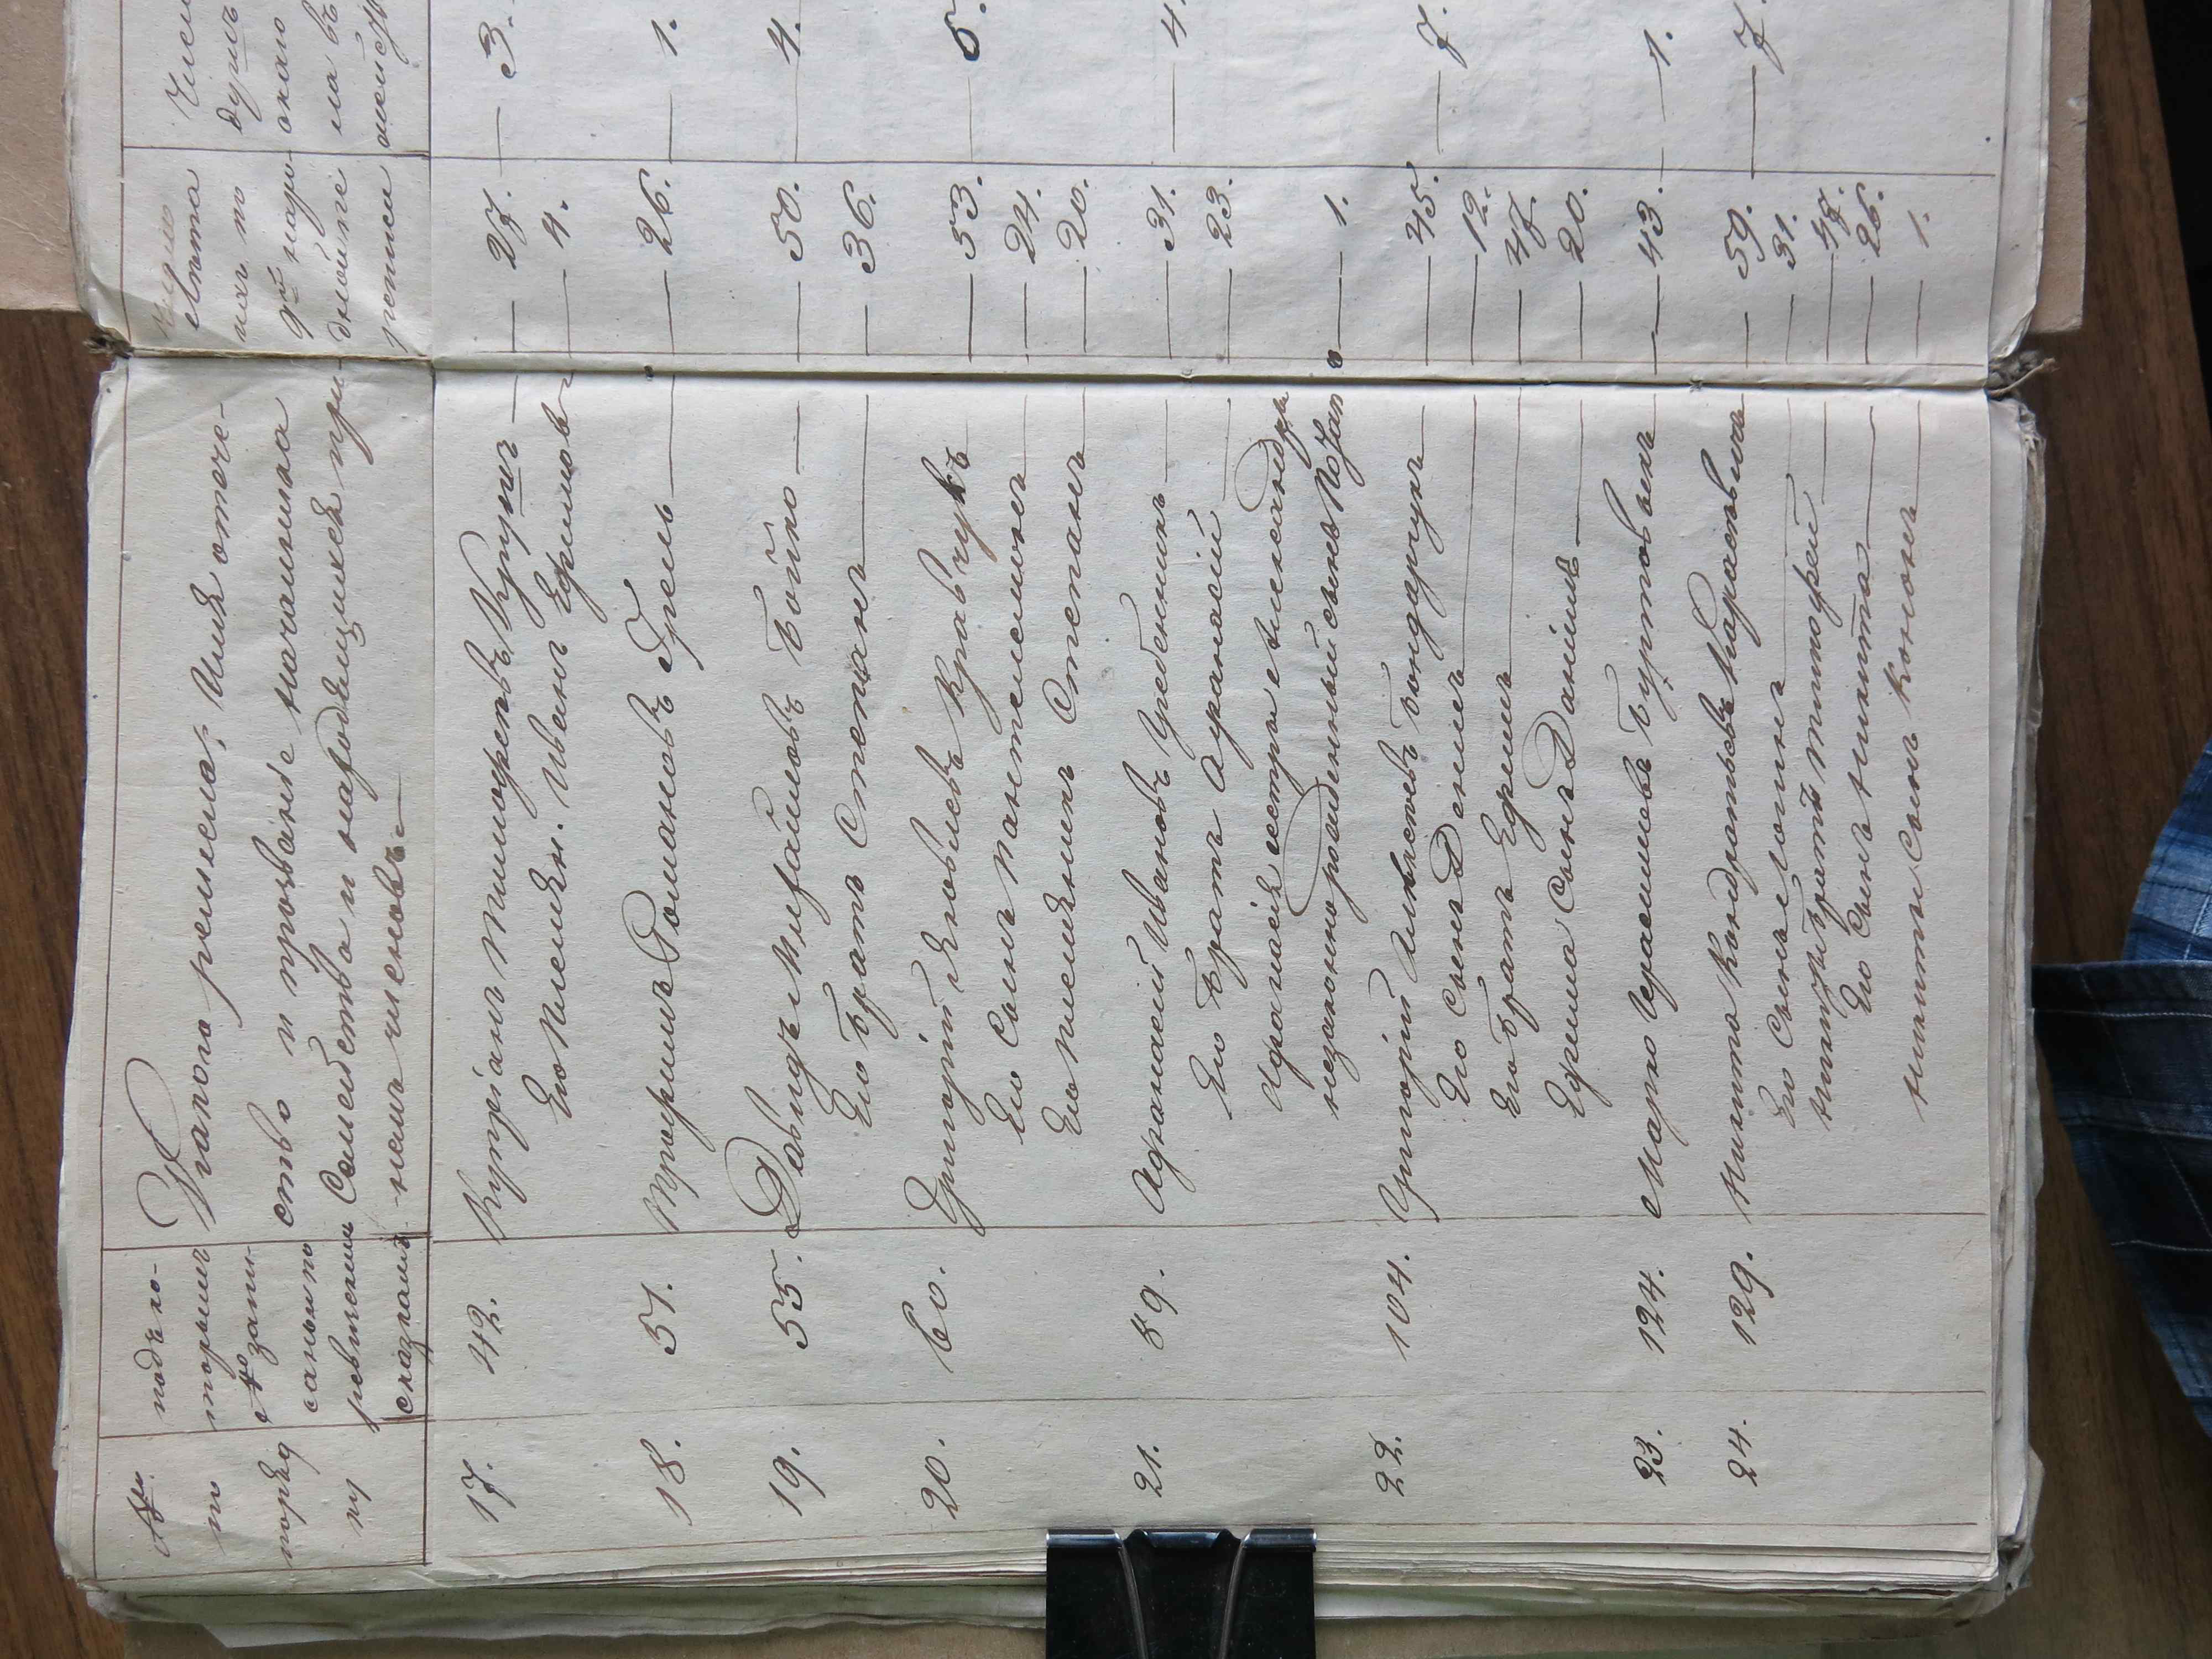 №№ по порядку
подъ которымъ № записаны по ревизскимъ сказкамъ
Какого ремесла; Имя отечество и прозваніе начальника Семейства и находящихся при немъ членовъ
Лѣта
душъ
17. 42. Купріянъ Тимофеевъ — 27. — 3.
Его племян. Иванъ Ефимовъ — 4.
18. 51. Трофимъ Романовъ — 26. — 1.
19. 55. Давидъ Михайловъ Бойко — 50. — 4.
Его братъ Степанъ — 36.
20. 60. Григорій Яковлевъ Кравчукъ — 53. — 5.
Его Сынъ Пантелемонъ — 24.
Его племянникъ Степанъ — 20.
21. 89. Афанасій Ивановъ Гребенникъ — 31. — 4.
Его братъ Афанасій — 23.
Афанасія сестры Александры
незаконнорожденный сынъ — 1.
22. 104. Григорій Алексѣевъ Бондарчукъ — 45. — 7.
Его Сынъ Демянъ — 12.
Его братъ Ефимъ — 47.
Ефима Сынъ Даніилъ — 20.
23. 124. Марко Герасимовъ — 43. — 1.
24. 129. Никита Кондратьевъ — 59. — 7.
Его Сынъ Логинъ — 31.
Никиты братъ Тимофей — 45.
Его Сынъ Никита — 26.
Никиты Сынъ Кононъ — 1.